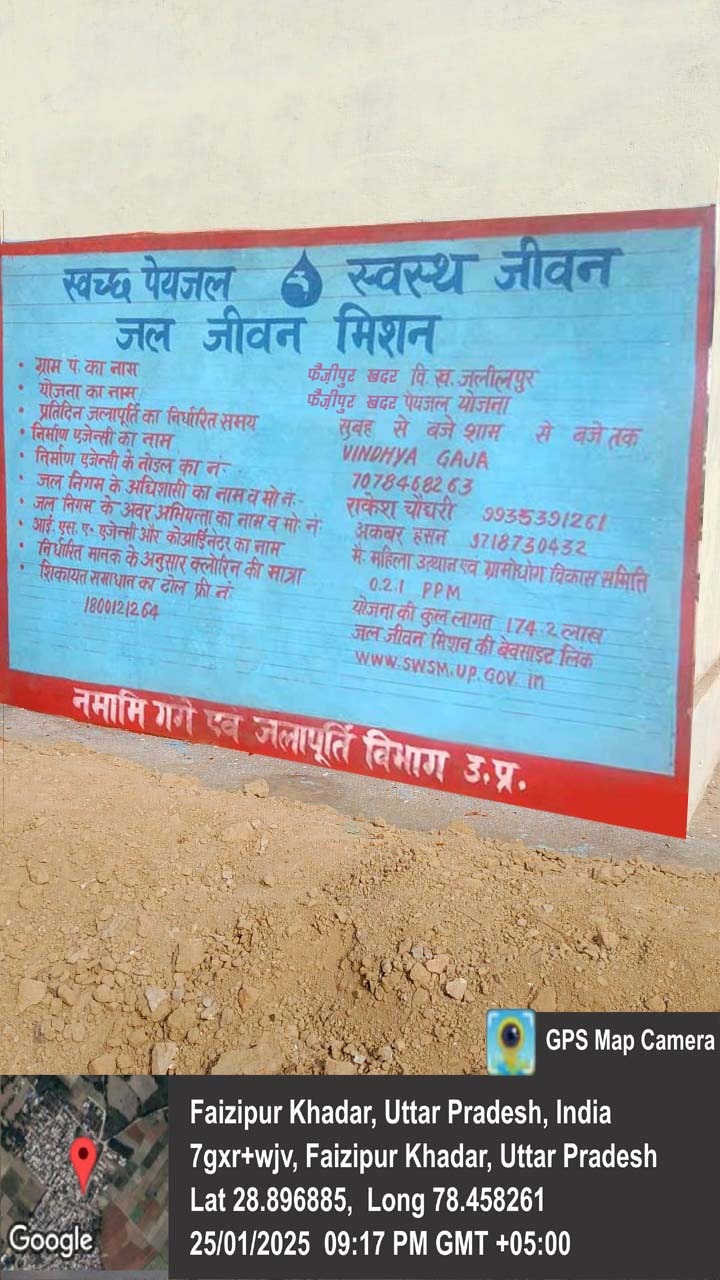 स्वच्छ पेयजल स्वस्थ जीवन
जल जीवन मिशन
• ग्राम पं. का नाम
• योजना का नाम
• प्रतिदिन जलापूर्ति का निर्धारित समय
• निर्माण एजेन्सी का नाम
• निर्माण एजेन्सी के नोडल का नं:-
• जल निगम के अधिशासी का नाम व मो नं:-
• जल निगम के अवर अभियन्ता का नाम व मो: नं
• आई. एस. ए० एजेन्सी और कोआर्डिनेटर का नाम
• निर्धारित मानक के अनुसार क्लोरिन की मात्रा
• शिकायत समाधान का टोल फ्री नं:
1800121264
फैज़ीपुर खदर वि. ख. जलीलपुर
फैज़ीपुर खदर पेयजल योजना
सुबह से बजे शाम से बजे तक
VINDHYA GAJA
7078468263
राकेश चौधरी 9935391261
अकबर हसन 9718730432
मै: महिला उत्थान एवं ग्रामोधोग विकास समिति
0.2.1 PPM
योजना की कुल लागत 174.2 लाख
जल जीवन मिशन की बेवसाइट लिंक
WWW.SWSM.UP.GOV.in
नमामि गंगे एवं जलापूर्ति विभाग उ.प्र.
GPS Map Camera
Faizipur Khadar, Uttar Pradesh, India
7gxr+wjv, Faizipur Khadar, Uttar Pradesh
Lat 28.896885, Long 78.458261
25/01/2025 09:17 PM GMT +05:00
Google